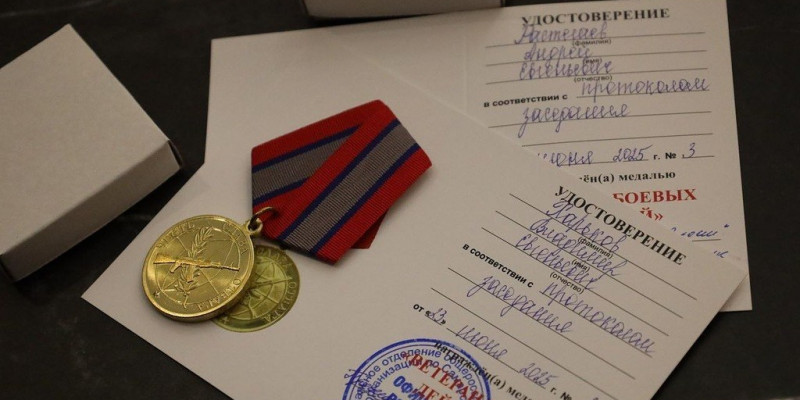 УДОСТОВЕРЕНИЕ
Растегаев
(фамилия)
Андрей
(имя)
Евгеньевич
(отчество)
в соответствии с протоколом
заседания
июня 2025 г. № 3
ён(а) медалью
БОЕВЫХ
Й»
УДОСТОВЕРЕНИЕ
Харьков
(фамилия)
Владимир
(имя)
Евгеньевич
(отчество)
в соответствии с протоколом
заседания
от «23 июня 2025
награждён(а) медал
«ВЕТЕРАН
ДЕЙ
ное отделение общерос
организации по Са
ОФИ